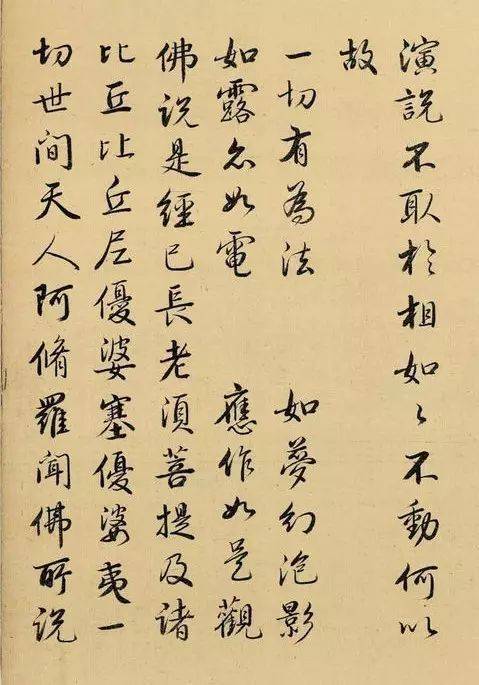 演說不取於相如々不動何以
故
一切有為法　如夢幻泡影
如露亦如電　應作如是觀
佛説是經已長老須菩提及諸
比丘比丘尼優婆塞優婆夷一
切世間天人阿脩羅聞佛所説